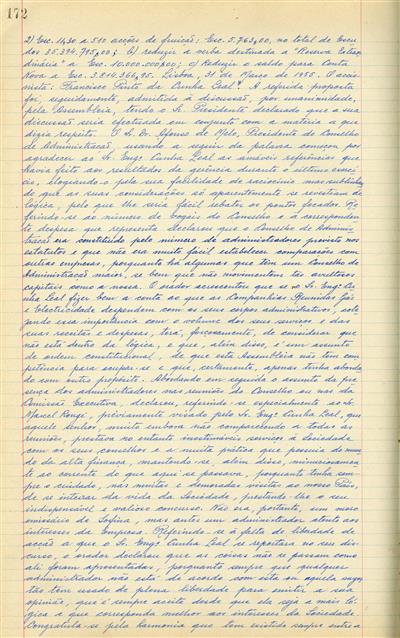 172
2) Esc. 11,30 a 510 acções de fruição: Esc. 5.763,00, no total de Escu-
dos 35.394.795,00; b) reduzir a verba destinada a "Reserva Extraor-
dinária" a Esc. 10.000.000,00; c) Reduzir o saldo para Conta
Nova a Esc. 3.814.366,95. Lisboa, 31 de Março de 1955. O accio-
nista: Francisco Pinto da Cunha Leal". A referida proposta
foi, seguidamente, admitida à discussão, por unanimidade,
pela Assembleia, tendo o Sr. Presidente declarado que a sua
discussão seria efectuada em conjunto com a matéria a que
digia respeito. O S. Dr. Afonso de Melo, Presidente do Conselho
de Administração, usando a seguir da palavra começou por
agradecer ao Sr. Engº Cunha Leal as amáveis referências que
havia feito aos resultados da gerência durante o último exercí-
cio, elogiando-o pela sua facilidade de raciocínio mas sublinhan-
do que as suas considerações só aparentemente se revestiam de
lógica, pelo que lhe seria fácil rebater os pontos focados. Re-
ferindo-se ao número de vogais do Conselho e à corresponden-
te despesa que representa declarou que o Conselho de Adminis-
tração era constituído pelo número de administradores previsto nos
estatutos e que não era muito fácil estabelecer comparações com
outras empresas, porquanto há algumas que têm um Conselho de
Administração maior, se bem que não movimentem tão avultosos
capitais como a nossa. O orador acrescentou que se o Sr. Engº Cu-
nha Leal fizer bem a conta ao que as Companhias Reunidas Gás
e Electricidade despendem com os seus corpos administrativos, cote-
jando essa importância com o volume dos seus serviços e das
suas receitas e despesas, terá, forçosamente, de considerar que
não está dentro da lógica, e que, além disso, é um assunto
de ordem constitucional, de que esta Assembleia não tem com-
petência para ocupar-se e que, certamente, apenas tinha aborda-
do sem outro propósito. Abordando em seguida o assunto da pre-
sença dos administradores nas reuniões do Conselho ou nas da
Comissão Executiva, declarou, referindo-se especialmente ao Sr.
Marcel Rongé, prèviamente visado pelo Sr. Engº Cunha Leal, que
aquele Senhor, muito embora não comparecendo a todas as
reuniões, prestava no entanto inestimáveis serviços à Sociedade
com os seus conselhos e a muita prática que possuia do mun-
do da alta finança, mantendo-se, além disso, minuciosamen-
te ao corrente do que aqui se passava, porquanto tinha sem-
pre o cuidado, nas muitas e demoradas visitas ao nosso País,
de se inteirar da vida da Sociedade, prestando-lhe o seu
indispensável e valioso concurso. Não era, portanto, um mero
emissário da Sofina, mas antes um administrador atento aos
interesses da Empresa. Referindo-se à falta de liberdade de
acção a que o Sr. Engº Cunha Leal se reportara no seu dis-
curso, o orador declarou que as coisas não se passam como
ali foram apresentadas, porquanto sempre que qualquer
administrador não está de acordo com esta ou aquela suges-
tão tem usado de plena liberdade para emitir a sua
opinião, que é sempre aceite desde que ela seja a mais ló-
gica e que corresponda melhor aos interesses da Sociedade.
Congratula-se pela harmonia que tem existido sempre entre a